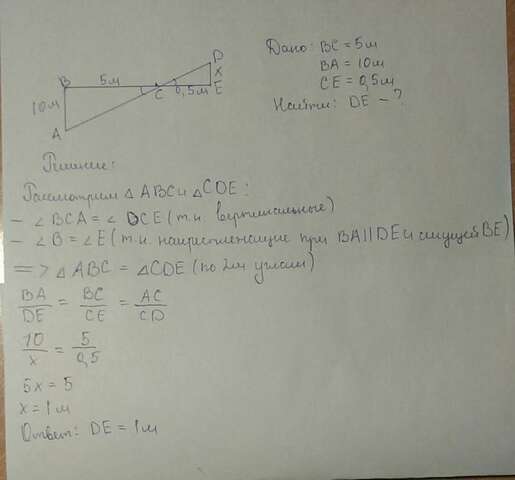 Дано: BC = 5м
BA = 10м
CE = 0,5м
Найти: DE - ?
D
x
B 5м C 0,5м E
10м
A
Решение:
Рассмотрим △ABC и △CDE:
- ∠BCA = ∠DCE (т.к. вертикальные)
- ∠B = ∠E (т.к. накрестлежащие при BA||DE и секущей BE)
=> △ABC = △CDE (по 2м углам)
BA/DE = BC/CE = AC/CD
10/x = 5/0,5
5x = 5
x = 1м
Ответ: DE = 1м